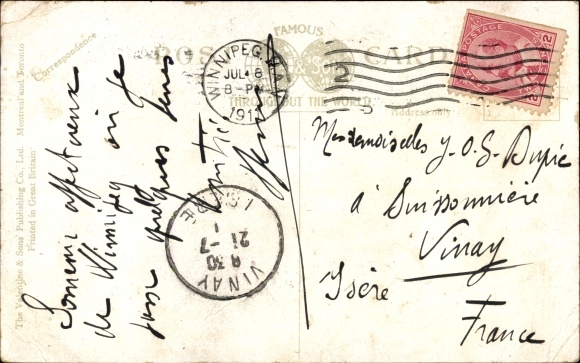 Correspondence
FAMOUS
POST CARD
THROUGHOUT THE WORLD.
Address only
The Valentine & Sons' Publishing Co., Ltd. Montreal and Toronto
Printed in Great Britain
WINNIPEG, MAN
JUL 8
8-PM
191
2
CANADA POSTAGE
2 CENTS
Souvenir affectueux
de Winnipeg où je
passe quelques jours
Mesdemoiselles J. O. G.
à Buissonnière
Vinay
Isère
France
VINAY
ISÈRE
8 30
21 -7